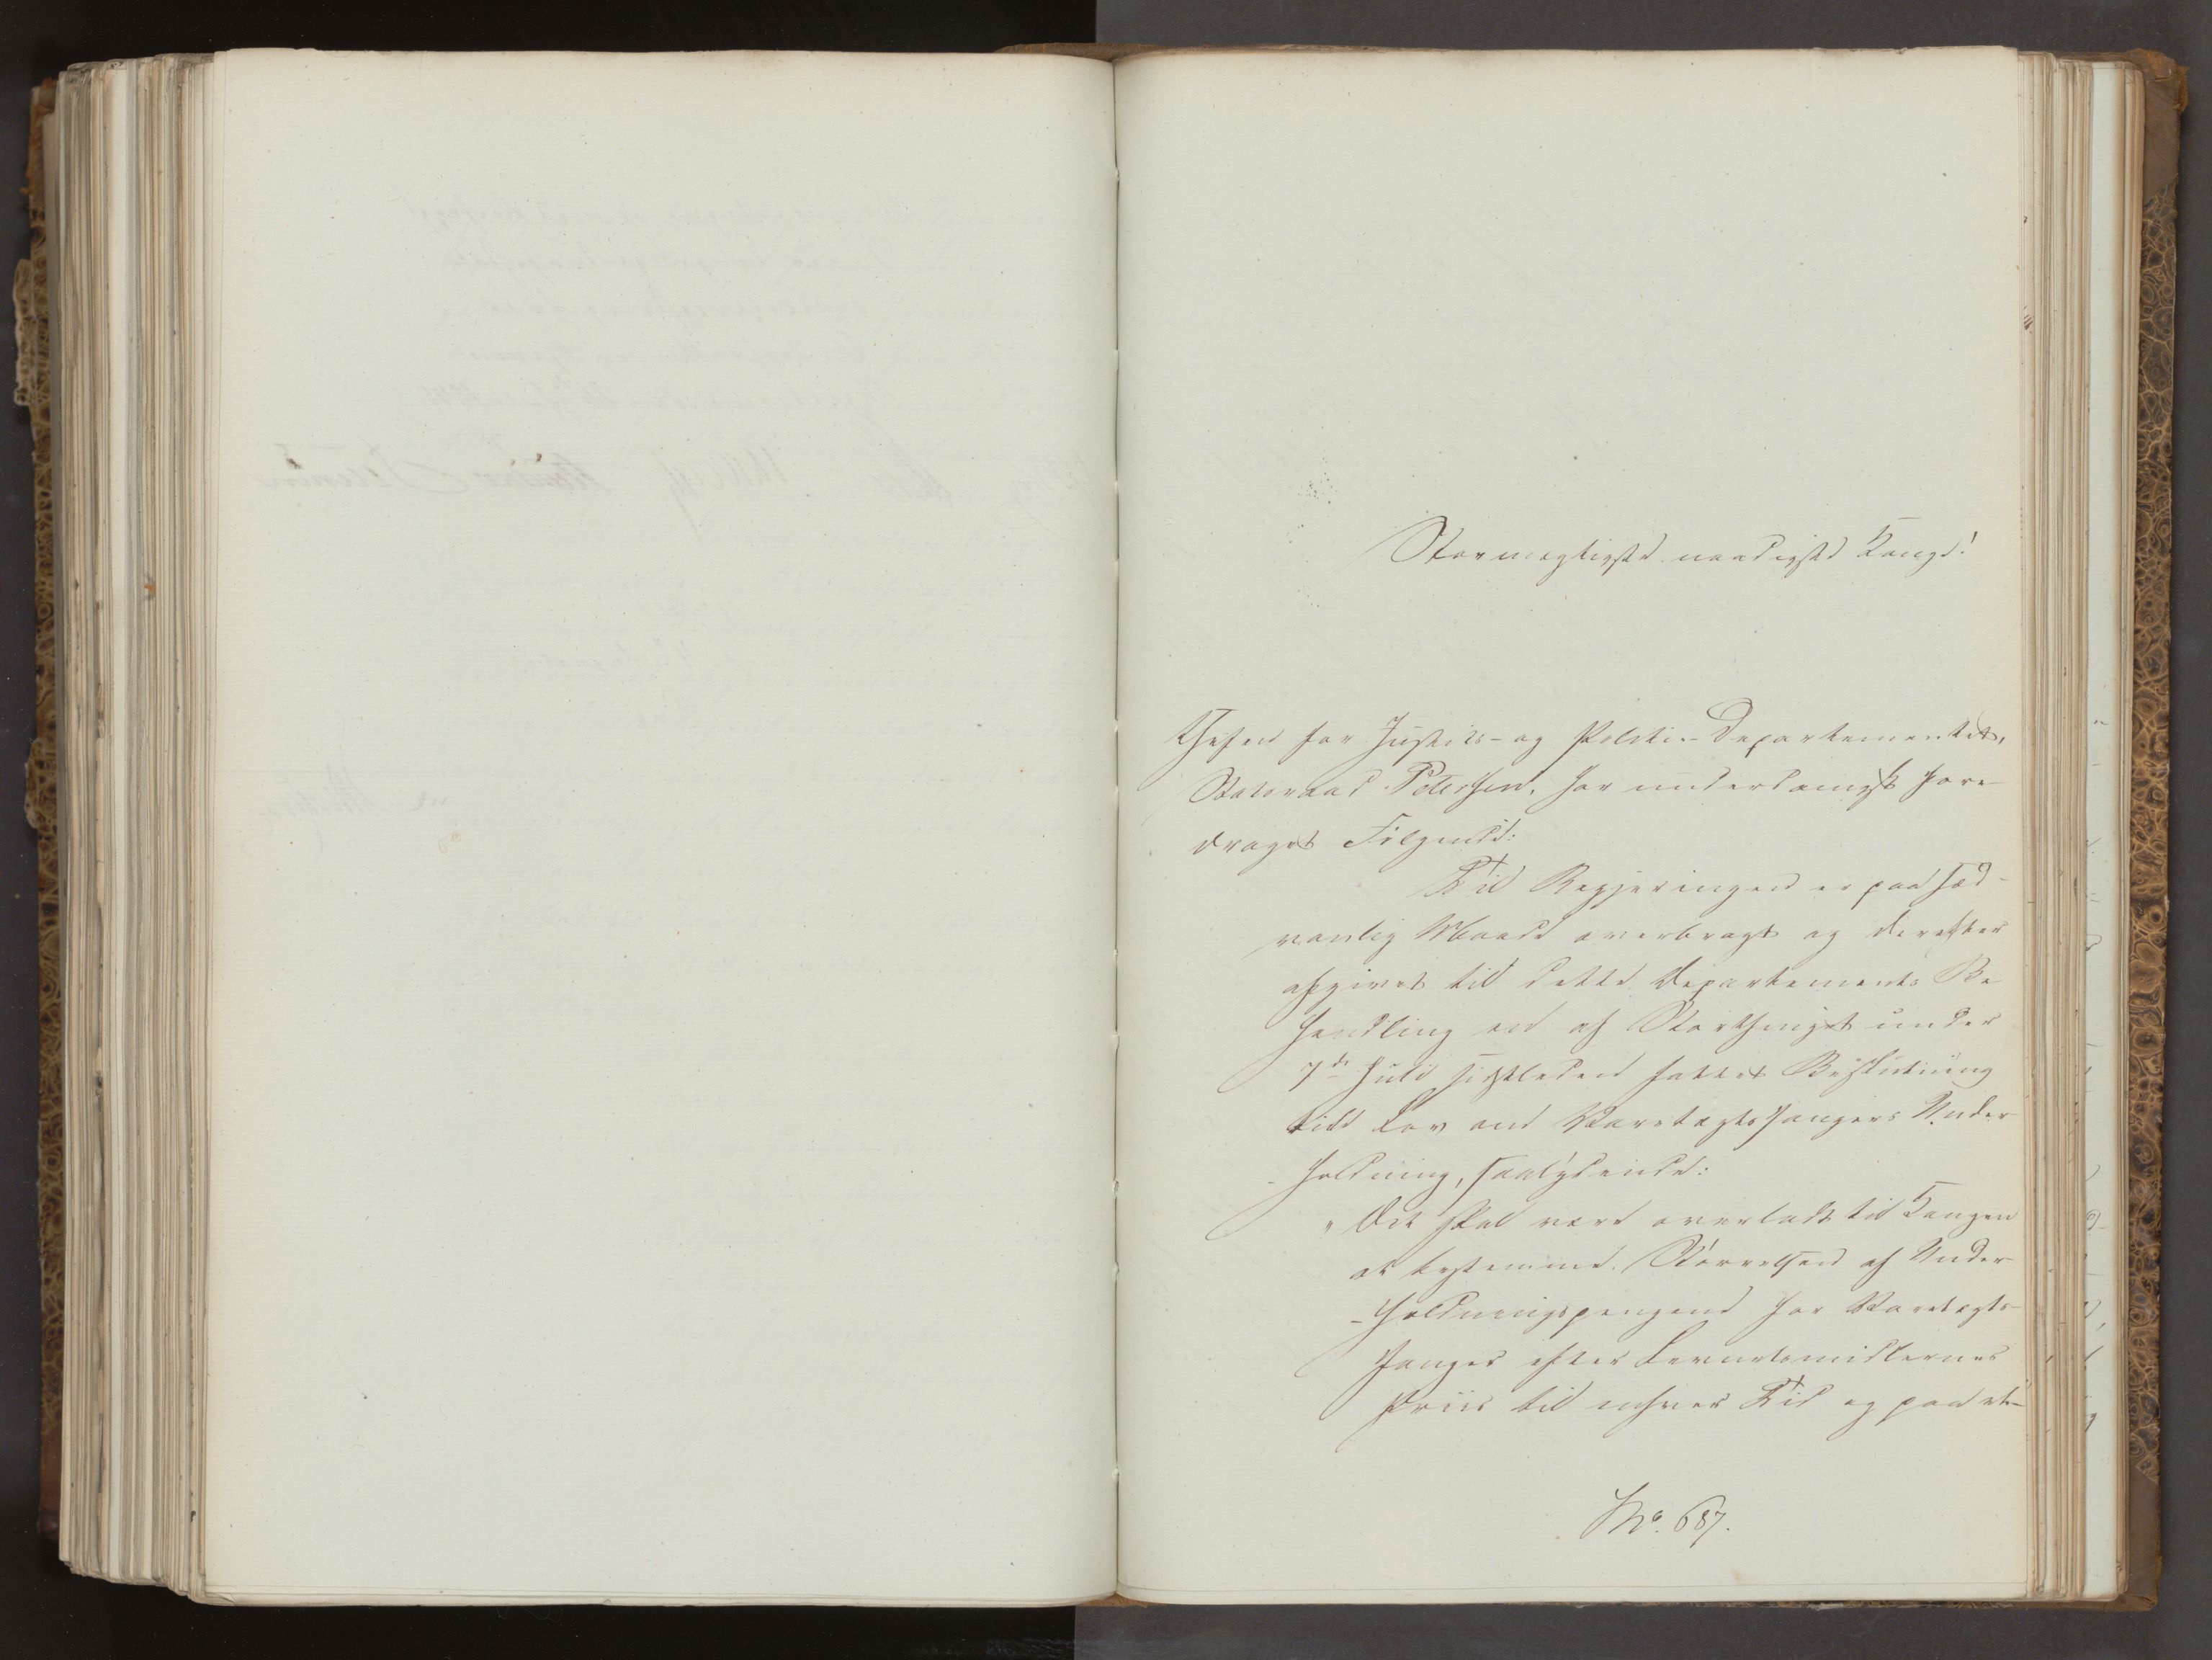 Stormægtigste naadigste Konge!
Chefen for Justits- og Politie-Departementet,
Statsraad Petersen, har underdanigst fore-
draget Følgende:
Til Regjeringen er paa sæd-
vanlig Maade overbragt og derefter
afgivet til dette Departements Be
handling en af Storthinget under
7de Juli sidstleden fattet Beslutning
til Lov om Varetægtsfangers Under
-holdning, saalydende:
"Det skal være overladt til Kongen
at bestemme Størrelsen af Under-
-holdningspengene for Varetægts-
fanger efter Levnetsmidlernes
Priis til enhver Tid og paa et-
No. 687.